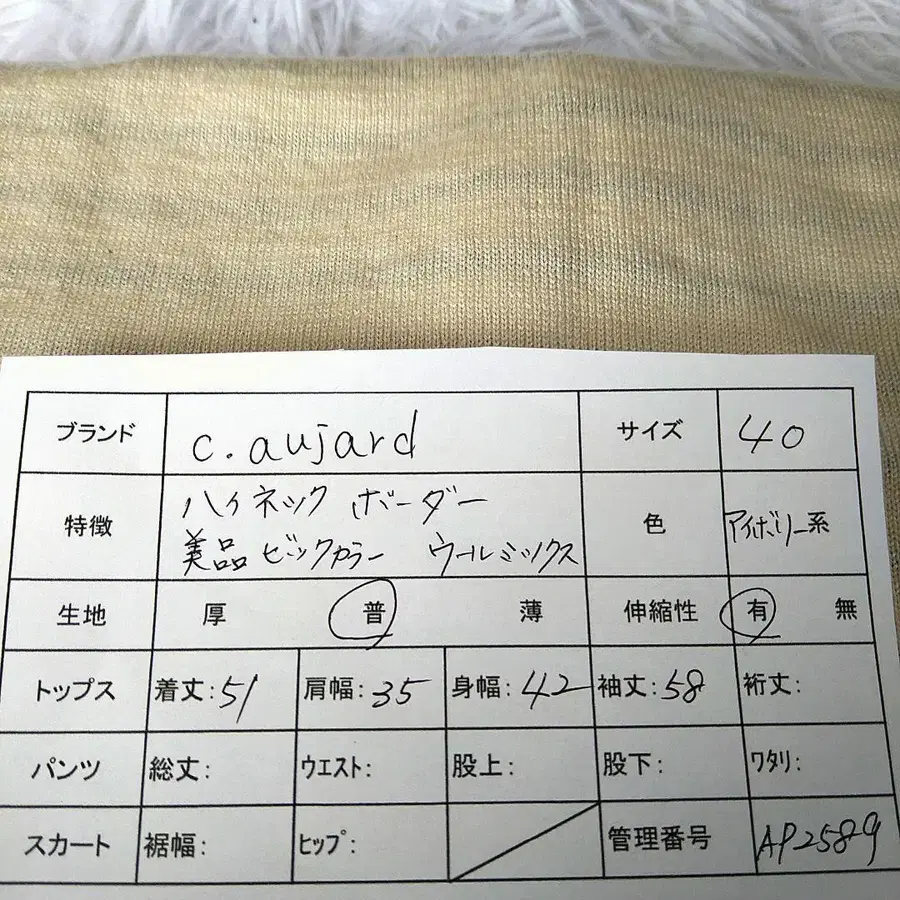 ブランド c.aujard サイズ 40
特徴 ハイネック ボーダー
美品 ビックカラー ウールミックス 色 アイボリー系
生地 厚 普 薄 伸縮性 有 無
トップス 着丈:51 肩幅:35 身幅:42 袖丈:58 裄丈:
パンツ 総丈: ウエスト: 股上: 股下: ワタリ:
スカート 裾幅: ヒップ: 管理番号 AP2589